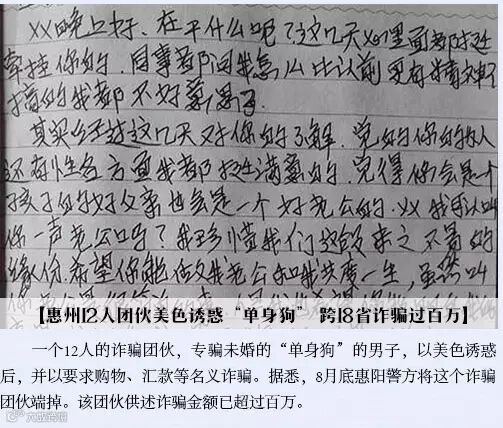 XX晚上好、在干什么呢？这几天心里面都挺
牵挂你的、同事都问我怎么比认前更有精神了
搞的我都不好意思了
其实经过这几天对你的了解、觉的你的为人
还有性各方面我都挺满意的、觉得你会是一个
孩子的好父亲也会是一个好老公的、XX我可以叫
你一声老公吗？我珍惜我们这段来之不易的
缘份、希望你能做我老公和我共度一生，虽然叫
【惠州12人团伙美色诱惑“单身狗” 跨18省诈骗过百万】
一个12人的诈骗团伙，专骗未婚的“单身狗”的男子，以美色诱惑
后，并以要求购物、汇款等名义诈骗。据悉，8月底惠阳警方将这个诈骗
团伙端掉。该团伙供述诈骗金额已超过百万。